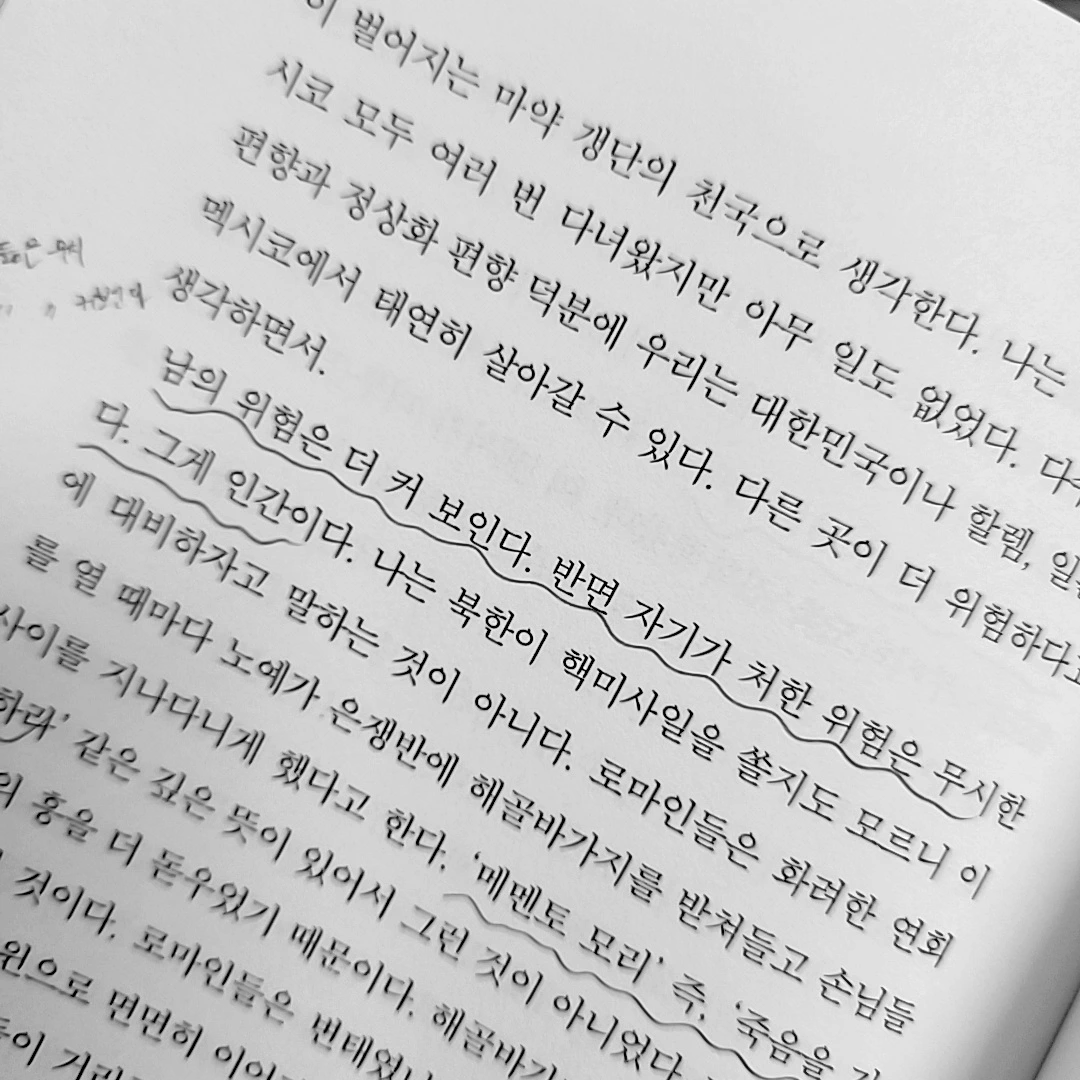 벌어지는 마약 갱단의 천국으로 생각한다. 나는
시코 모두 여러 번 다녀왔지만 아무 일도 없었다.
편향과 정상화 편향 덕분에 우리는 대한민국이나 할렘,
멕시코에서 태연히 살아갈 수 있다. 다른 곳이 더 위험하다고
생각하면서.
남의 위험은 더 커 보인다. 반면 자기가 처한 위험은 무시한
다. 그게 인간이다. 나는 북한이 핵미사일을 쏠지도 모르니 이
에 대비하자고 말하는 것이 아니다. 로마인들은 화려한 연회
를 열 때마다 노예가 은쟁반에 해골바가지를 받쳐들고 손님들
사이를 지나다니게 했다고 한다. '메멘토 모리' 즉, '죽음을
하라' 같은 깊은 뜻이 있어서 그런 것이 아니었다.
의 흥을 더 돋우었기 때문이다. 해골바가
것이다. 로마인들은 변태였
원으로 면면히 이어